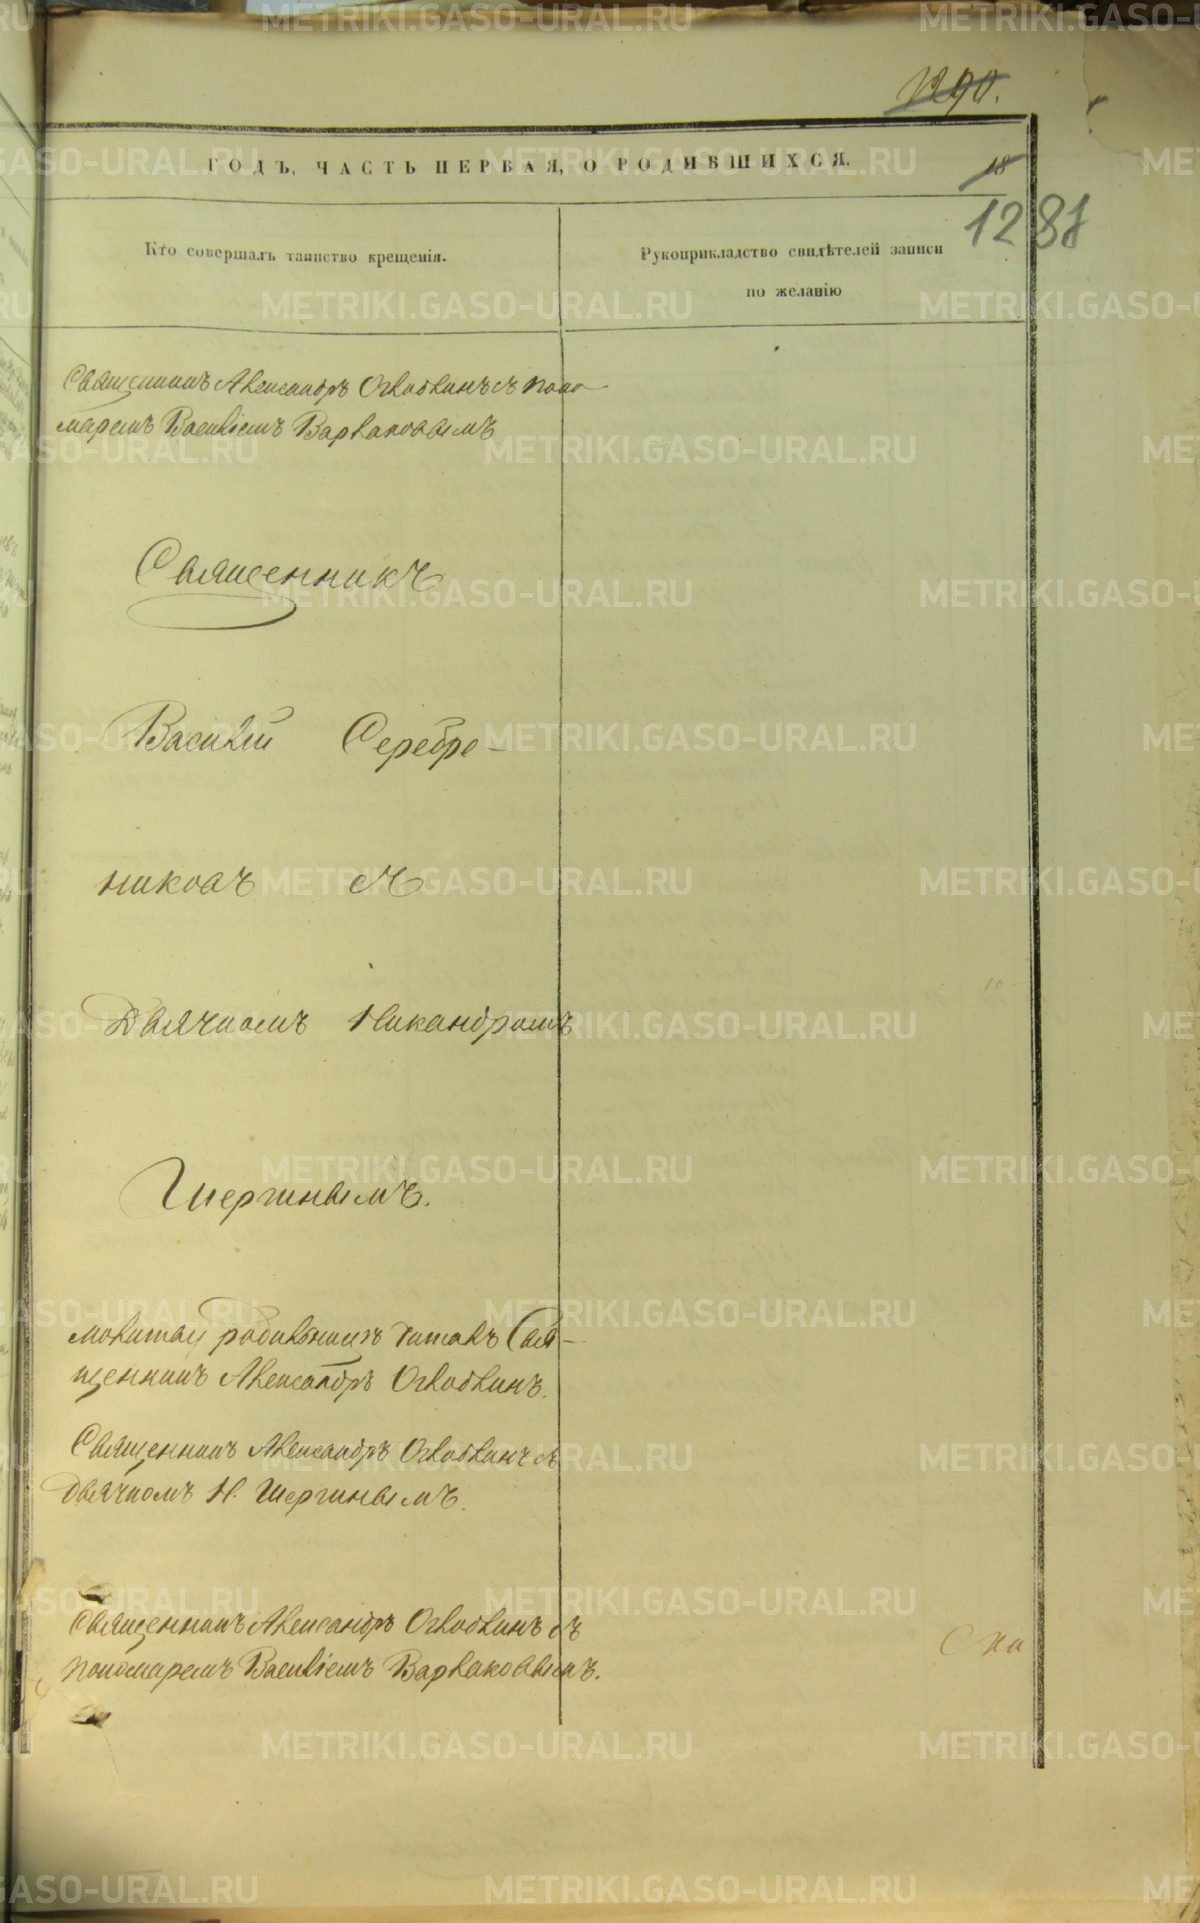 1290.
ГОДЪ, ЧАСТЬ ПЕРВАЯ, О РОДИВШИХСЯ.
18
1287
Кто совершалъ таинство крещенія.
Рукоприкладство свидѣтелей записи
по желанію
Священникъ Александръ Оглоблинъ съ поно-
маремъ Василіемъ Варлаковымъ
Священникъ
Василій Серебре-
никовъ съ
Дьячкомъ Никандромъ
Шергинымъ.
молитву родильницѣ читалъ Свя-
щенникъ Александръ Оглоблинъ.
Священникъ Александръ Оглоблинъ съ
Дьячкомъ Н. Шергинымъ.
Священникъ Александръ Оглоблинъ съ
пономаремъ Василіемъ Варлаковымъ.
METRIKI.GASO-URAL.RU